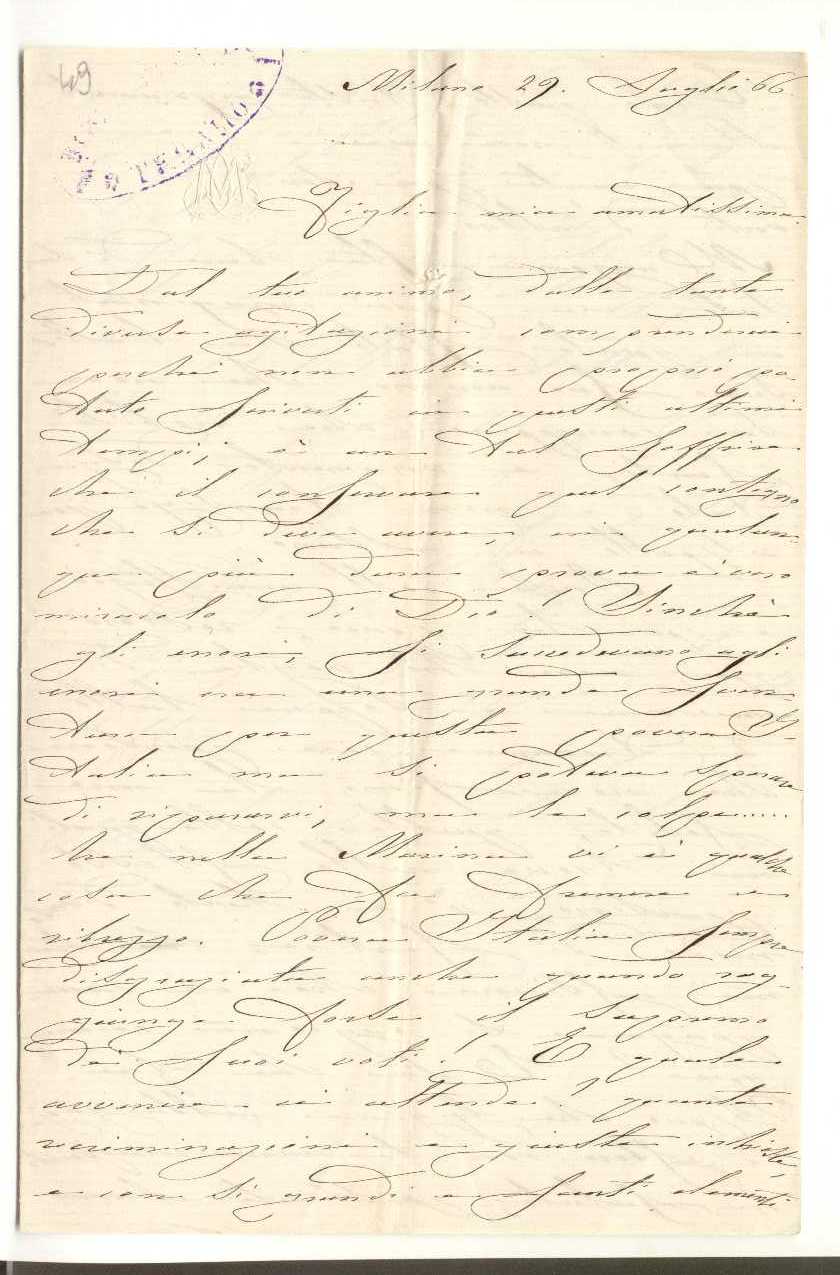 49
Milano 29. Luglio 66
Figlia mia amatissima.
Dal tuo animo, dalle tante
diverse agitazioni comprenderai
perchè non abbia proprio po-
tuto scriverti in questi ultimi
tempi; è un tal soffrire
che il conservare quel contegno
che si deve avere, in qualun-
que più dura prova è vero
miracolo di Dio! Sinchè
gli errori, si succedevano agli
errori era una grande sven
tura per questa povera I-
talia ma si poteva sperare
di ripararvi, ma le colpe......
che nella Marina vi è qualche
cosa che fa fremere e
ribrezzo. Povera Italia sempre
disgraziata anche quando rag-
giunge forse il supremo
de' suoi voti! E quale
avvenire ci attende? quante
recriminazioni e giuste inchieste,
e con sì grandi e santi elementi